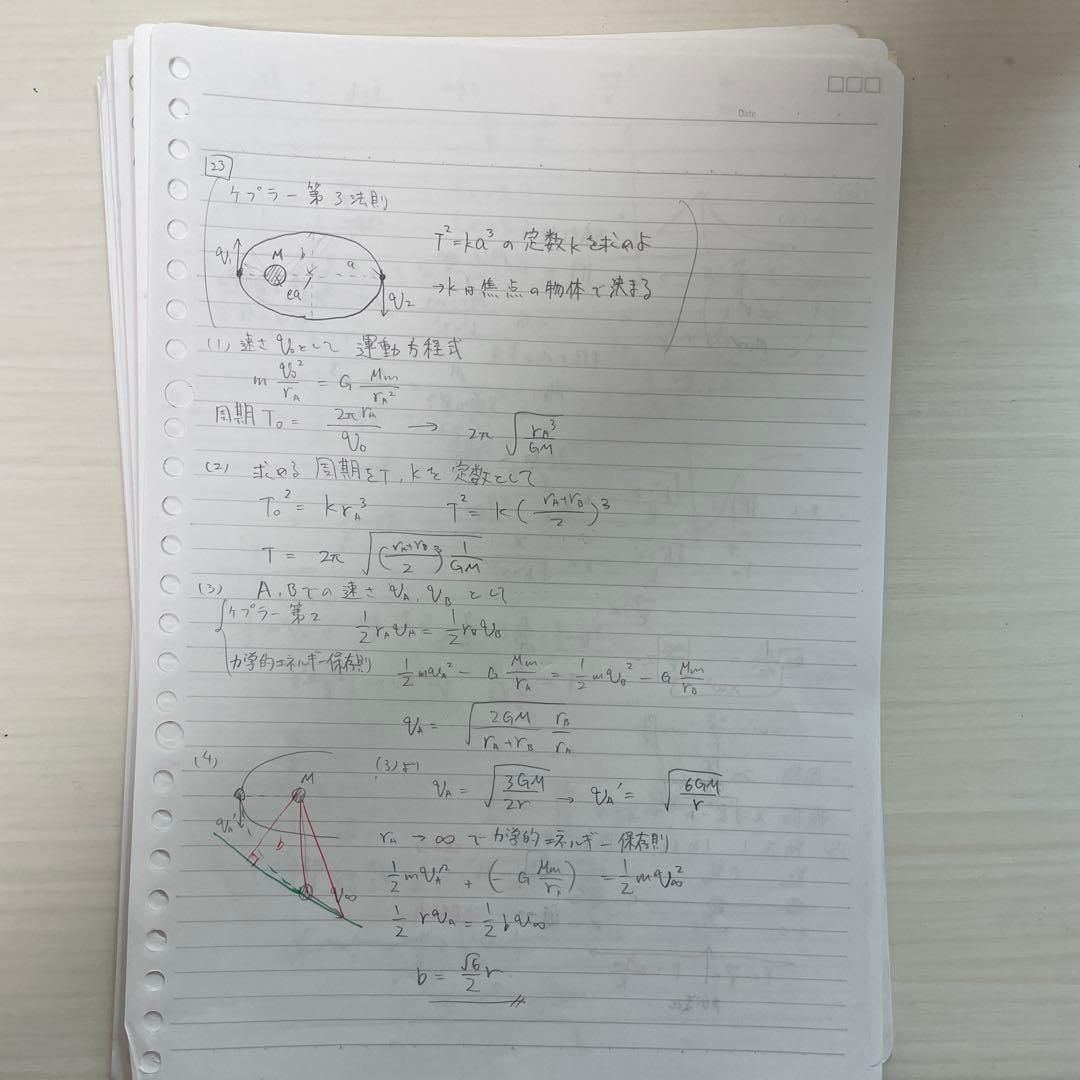 Date
23
ケプラー第3法則
T²=ka³の定数kを求めよ
→kは焦点の物体で決まる
v₁ M b a ea v₂
(1) 速さv₀として 運動方程式
m v₀²/r_A = G Mm/r_A²
周期T₀ = 2πr_A/v₀ → 2π√(r_A³/GM)
(2) 求める周期をT, kを定数として
T₀² = kr_A³ T² = k((r_A+r_B)/2)³
T = 2π√(((r_A+r_B)/2)³ 1/GM)
(3) A,Bでの速さ v_A, v_B として
ケプラー第2 1/2 r_A v_A = 1/2 r_B v_B
力学的エネルギー保存則 1/2 mv_A² - G Mm/r_A = 1/2 mv_B² - G Mm/r_B
v_A = √(2GM/(r_A+r_B) r_B/r_A)
(4) (3)より v_A = √(3GM/2r) → v_A' = √(6GM/r)
M v_A' b v∞
r_A → ∞ で力学的エネルギー保存則
1/2 mv_A'² + (-G Mm/r_A) = 1/2 mv∞²
1/2 rv_a = 1/2 bv∞
b = √6/2 r